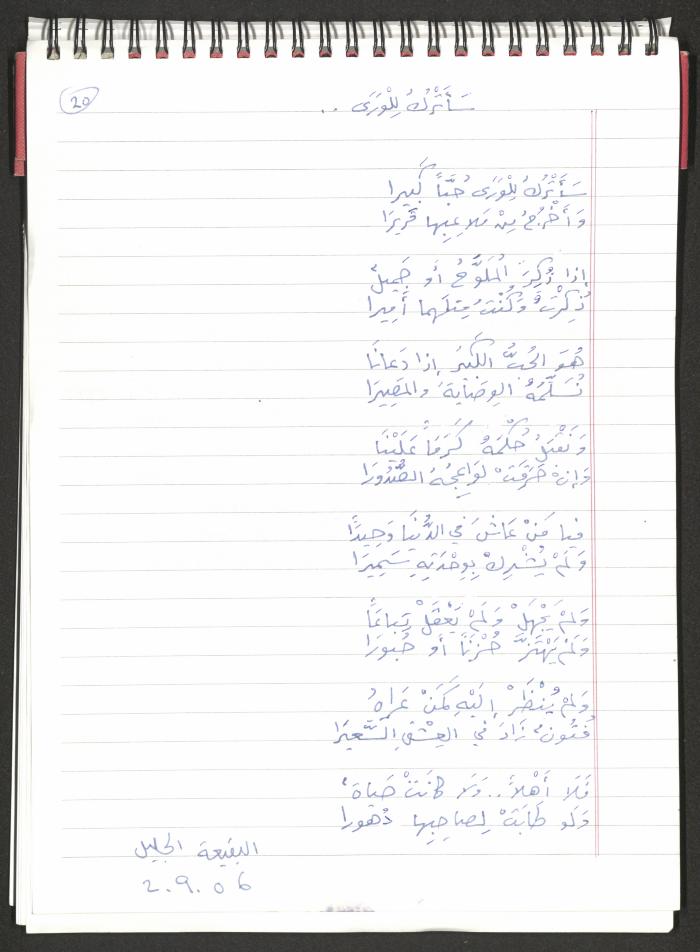 20
سَأَتْرُكُ لِلْوَرَى ..
سَأَتْرُكُ لِلْوَرَى حُبَّاً كَبيرا
وَأَخْرُجُ مِنْ مَلاعِبِها قَريرَا
إذا ذُكِرَ المُلَوَّحُ أو جَميلٌ
ذُكِرْتُ وَكُنْتُ مِثلَهما أَميرا
هُوَ الحُبُّ الكَبيرُ إذا دَعانَا
نُسَلِّمُهُ الوِصَايَةَ والمَصِيرَا
وَنَقْبَلُ حُكْمَهُ كَرَمَاً عَلَيْنَا
وَإنْ حَرَقَتْ لَوَاعِجُهُ الصُّدُورَا
فيا مَنْ عَاشَ في الدُّنْيَا وَحِيدَاً
وَلَمْ يُشْرِكْ بِوِحْدَتِهِ سَمِيرَا
وَلَمْ يَجْهَلْ وَلَمْ يَعْقَلْ تِباعَاً
وَلَمْ يَهْتَزَّ حُزْنَاً أو حُبُورَا
وَلَمْ يُنْظَرْ إلَيْهِ كَمَنْ عَرَاهُ
فُتُونٌ زَادَ في العِشْقِ السَّعيرَا
فَلَا أَهْلاً.. وَلَا كَانَتْ حَيَاةٌ
وَلَو طَابَتْ لِصاحِبِها دُهورا
البقيعة الجليل
2.9.06